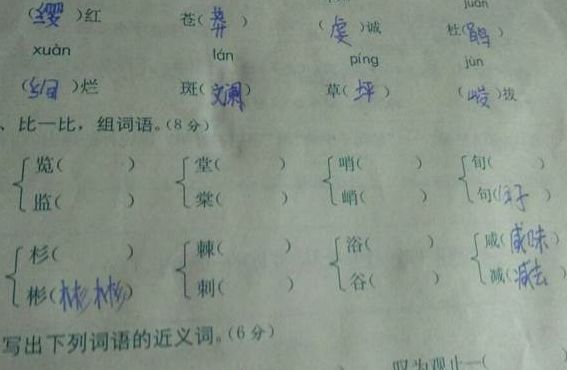 juān
(缨)红 苍(莽) (虔)诚 杜(鹃)
xuàn lán píng jùn
(绚)烂 斑(斓) 草(坪) (峻)拔
、比一比，组词语。(8分)
览( ) 堂( ) 哨( ) 旬( )
监( ) 棠( ) 峭( ) 句(句子)
杉( ) 棘( ) 浴( ) 咸(咸味)
彬(彬彬) 刺( ) 谷( ) 减(减去)
写出下列词语的近义词。(6分)
叹为观止—( )